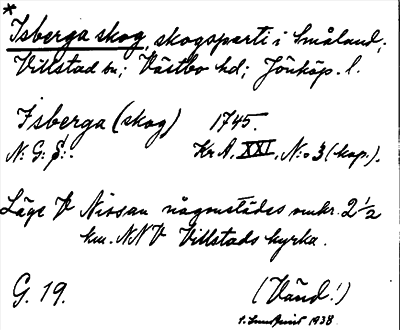 *
Isberga skog, skogsparti i Småland;
Villstad sn; Västbo hd; Jönköp. l.
Isberga (skog) 1745.
N: G: S:. Kr A, XXI, N:o 3 (kop.).
Läge V Nissan någonstädes omkr. 2 1/2
km. NNV Villstads kyrka.
G. 19. (Vänd!)
1938